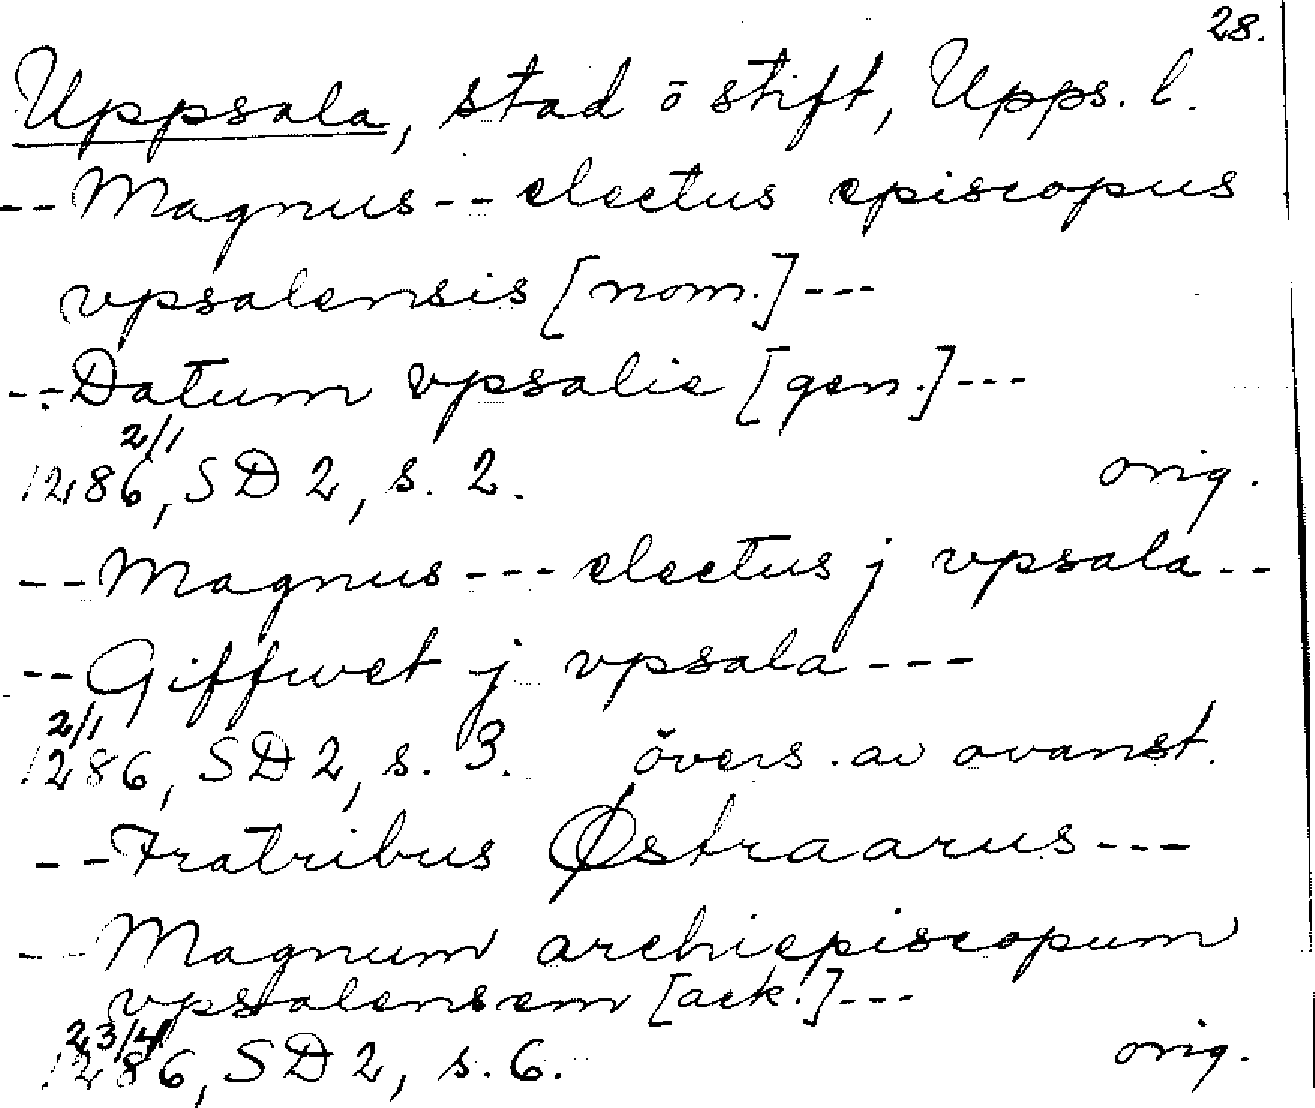 28.
Uppsala, stad o stift, Upps. l.
-- Magnus -- electus episcopus
vpsalensis [nom.] ---
-- Datum vpsalie [gen.] ---
2/1
1286, SD 2, s. 2. orig.
-- Magnus --- electus j vpsala --
-- Giffwet j vpsala ---
2/1
1286, SD 2, s. 3. övers. av ovanst.
-- Fratribus Østraarus ---
-- Magnum archiepiscopum
vpsalensem [ack.] ---
23/4
1286, SD 2, s. 6. orig.